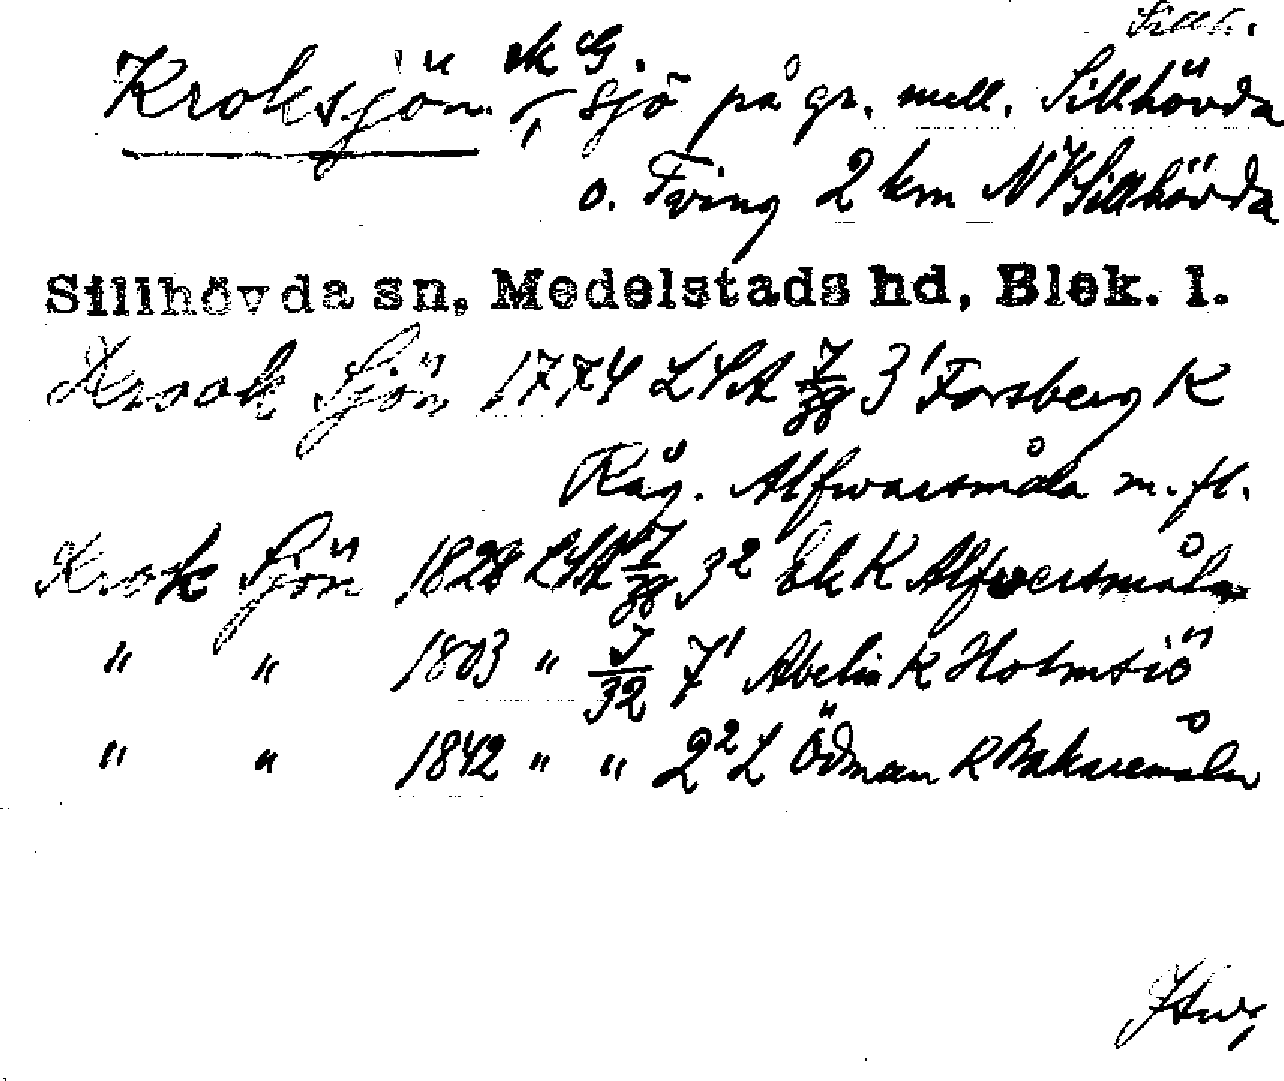 Sillh.
Kroksjön sk G. sjö på gr. mell. Sillhövda
o. Tving 2 km NV Sillhövda
Sillhövda sn, Medelstads hd, Blek. l.
Krook Sjön 1774 LSA J/38 3¹ Forsberg K
Råg. Alfwarsmåla m. fl.
Krok Sjön 1828 LSA J/38 3² Ek K Alfversmåla
" " 1803 " J/32 7¹ Abelin K Holmsiö
" " 1842 " " 2² L Ödman K Bakaremåla